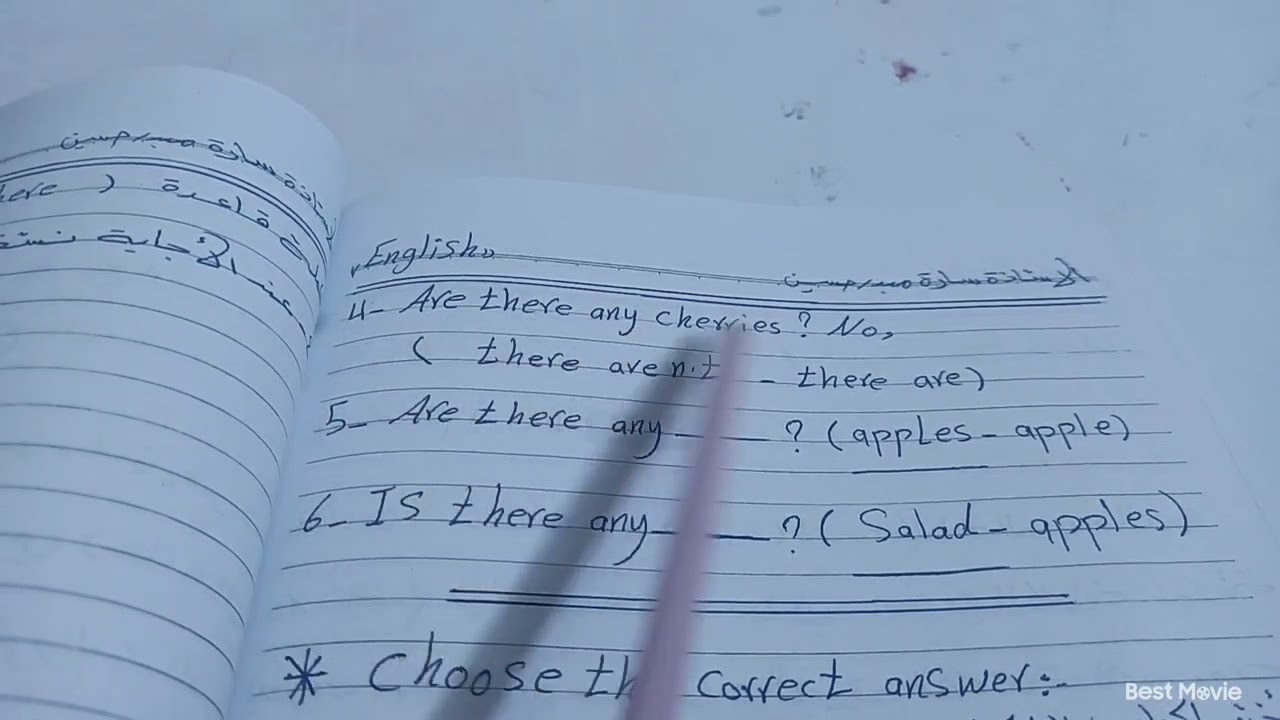 الاستاذة سارة
here ) قاعدة
عند الأجابة
English
الاستاذة سارة
4- Are there any cherries? No,
( there aren't - there are)
5- Are there any ____ ? (apples - apple)
6- Is there any ____ ? ( Salad - apples)
* Choose th correct answer:-
Best Movie